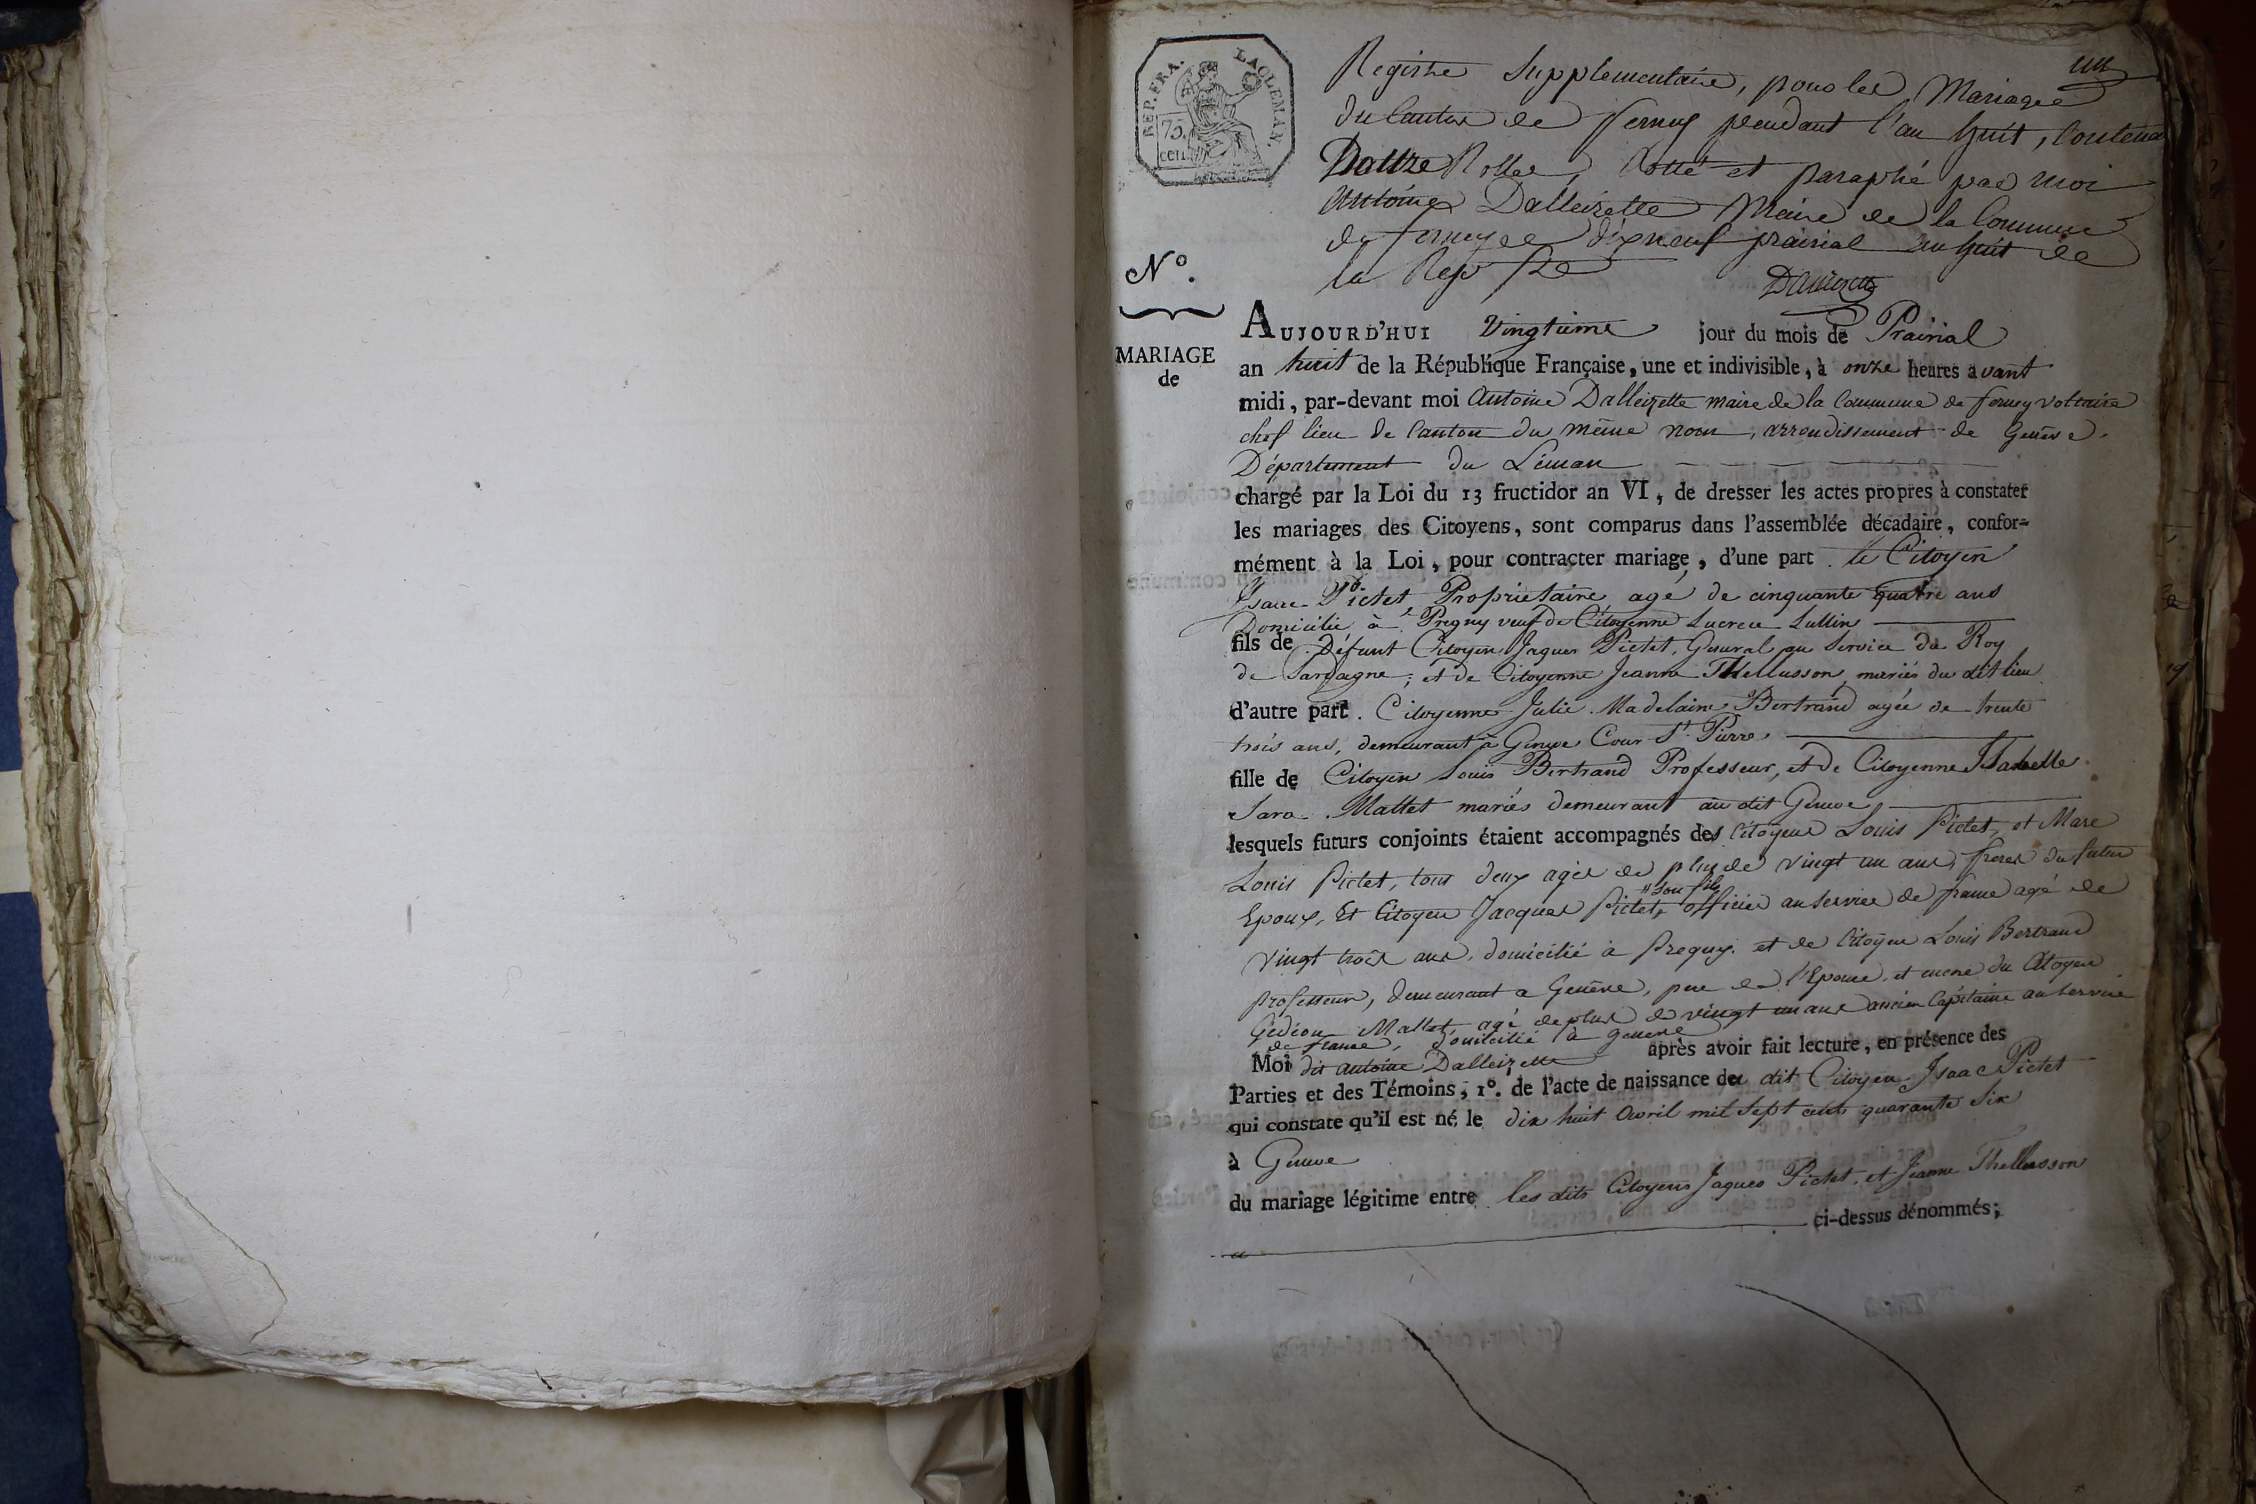 REP. FRA.
LAC LEMAN.
75.
cent.
un
Registre Supplementaire, pour les Mariages
du Canton de ferney pendant l'an huit, Contena
Douze Rolles, Cotté et paraphé par moi
Antoine Dalleizette Maire de la Commune
de ferney ce dixneuf prairial an huit de
la Rep
Dalleizette
N°.
MARIAGE
de
AUJOURD'HUI vingtieme jour du mois de Prairial
an huit de la République Française, une et indivisible, à onze heures avant
midi, par-devant moi Antoine Dalleizette maire de la Commune de ferney voltaire
chef lieu de Canton du même nom, arrondissement de Genève.
Département du Léman
chargé par la Loi du 13 fructidor an VI, de dresser les actes propres à constater
les mariages des Citoyens, sont comparus dans l'assemblée décadaire, confor-
mément à la Loi, pour contracter mariage, d'une part le Citoyen
Isaac Pictet Propriétaire agé de cinquante quatre ans
Domicilié à Pregny veuf de Citoyenne Lucrece Lullin
fils de Défunt Citoyen Jaques Pictet, Géneral au Service du Roy
de Sardagne, et de Citoyenne Jeanne Thellusson, mariés du dit lieu
d'autre part. Citoyenne Julie Madelaine Bertrand agée de trente
trois ans, demeurant à Geneve Cour St. Pierre
fille de Citoyen Louis Bertrand Professeur, et de Citoyenne Isabelle
Sara Mallet mariés demeurant au dit Geneve
lesquels futurs conjoints étaient accompagnés des Citoyens Louis Pictet, et Marc
Louis Pictet, tous deux agés de plus de vingt un ans, freres du futur
" son fils
Epoux, Et Citoyen Jacques Pictet, officier au service de france agé de
vingt trois ans, domicilié à Pregny. et de Citoyen Louis Bertrand
professeur, demeurant a Genêve, pere de l'Epouse, et encore du Citoyen
Gédéon Mallet, agé de plus de vingt un ans ancien Capitaine au service
de france, domicilié à geneve
Moi dit Antoine Dalleizette après avoir fait lecture, en présence des
Parties et des Témoins, 1°. de l'acte de naissance du dit Citoyen Isaac Pictet
qui constate qu'il est né le dix huit Avril mil sept cent quarante six
à Geneve
du mariage légitime entre les dits Citoyens Jaques Pictet, et Jeanne Thellusson
ci-dessus dénommés;